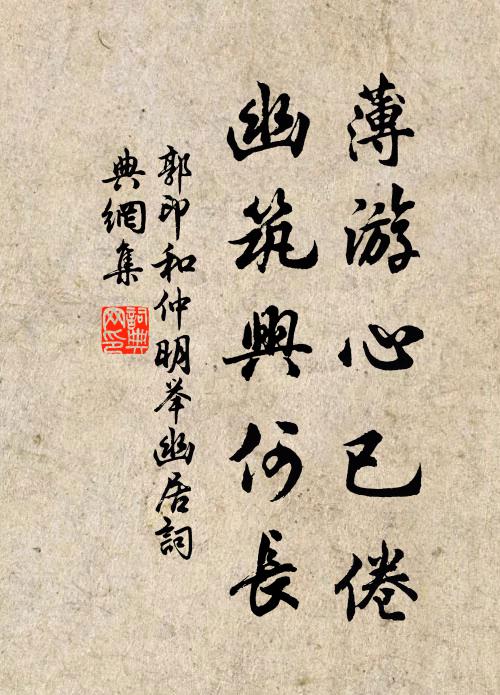 薄游心已倦
幽筑興何長
郭印和仲明举幽居詞
典網集
詞典
网印